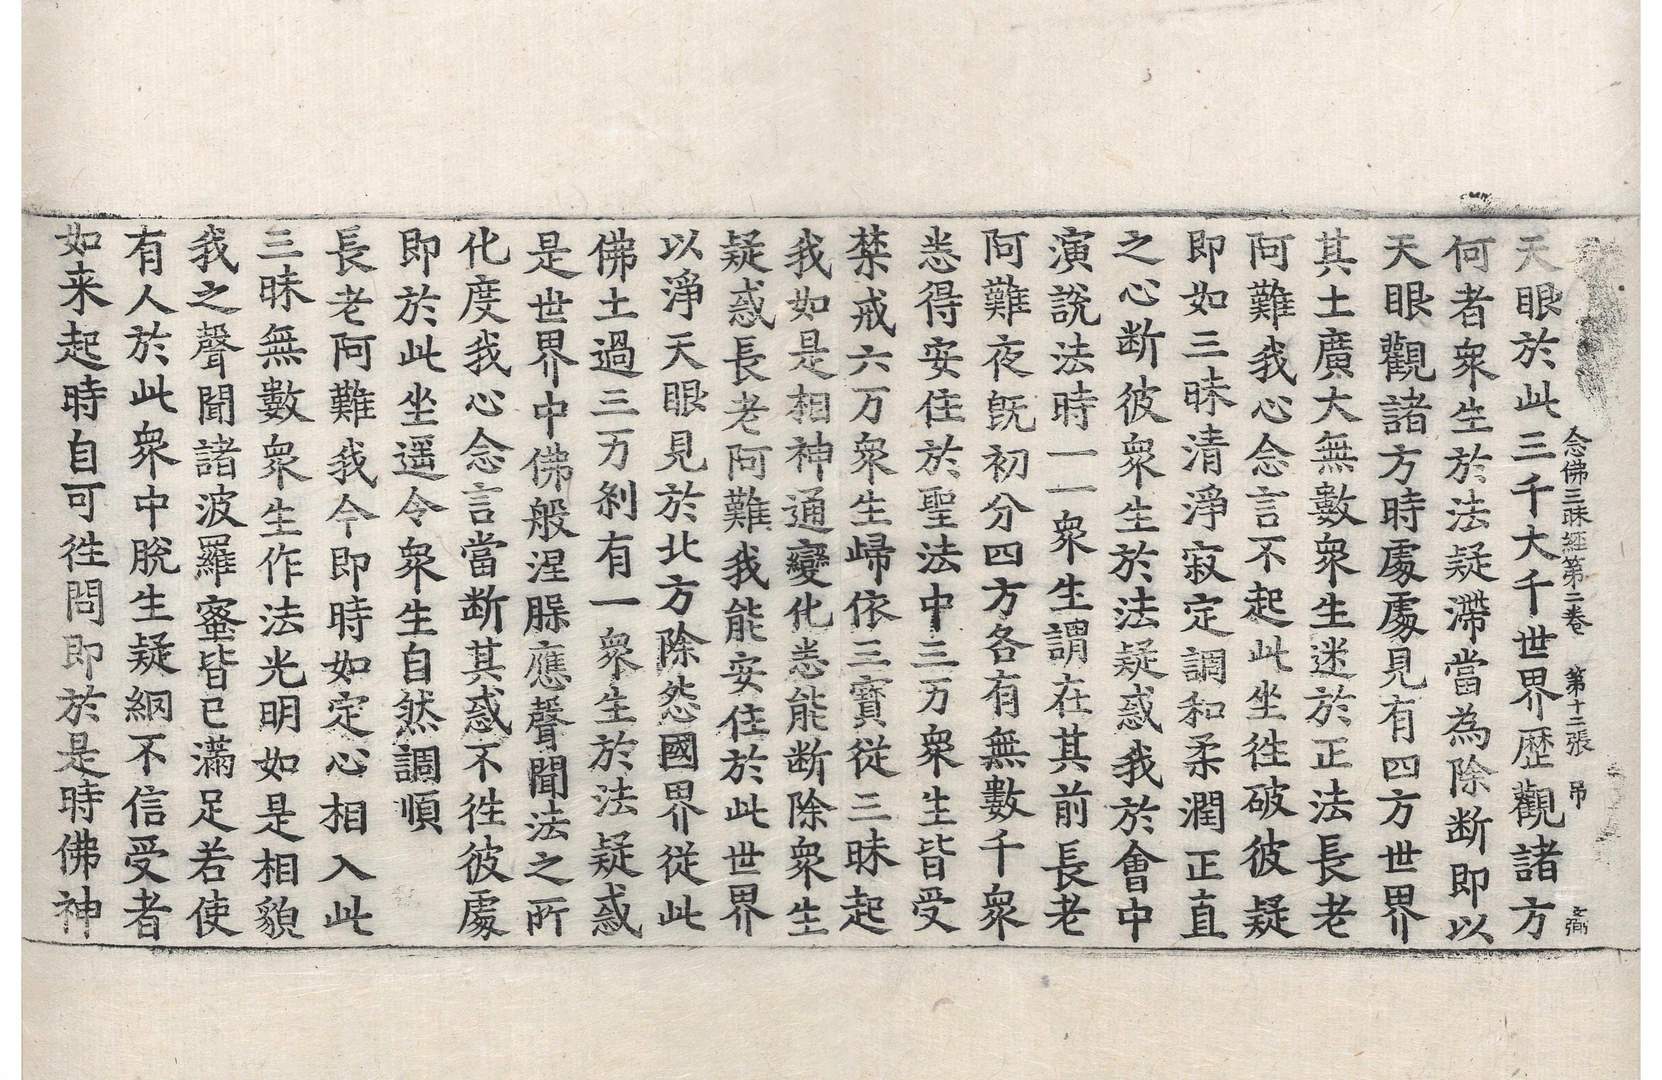 念佛三昧經第二卷 第十二張 吊 文 彌
天眼於此三千大千世界歷觀諸方
何者衆生於法疑滯當為除断即以
天眼觀諸方時處處見有四方世界
其土廣大無數衆生迷於正法長老
阿難我心念言不起此坐徃破彼疑
即如三昧清淨寂定調和柔潤正直
之心断彼衆生於法疑惑我於會中
演說法時一一衆生謂在其前長老
阿難夜旣初分四方各有無數千衆
悉得安住於聖法中三万衆生皆受
禁戒六万衆生歸依三寶從三昧起
我如是相神通變化悉能断除衆生
疑惑長老阿難我能安住於此世界
以淨天眼見於北方除怨國界從此
佛土過三万刹有一衆生於法疑惑
是世界中佛般涅𦞃應聲聞法之所
化度我心念言當断其惑不徃彼處
即於此坐遥令衆生自然調順
長老阿難我今即時如定心相入此
三昧無數衆生作法光明如是相貌
我之聲聞諸波羅蜜皆已滿足若使
有人於此衆中脫生疑網不信受者
如来起時自可徃問即於是時佛神